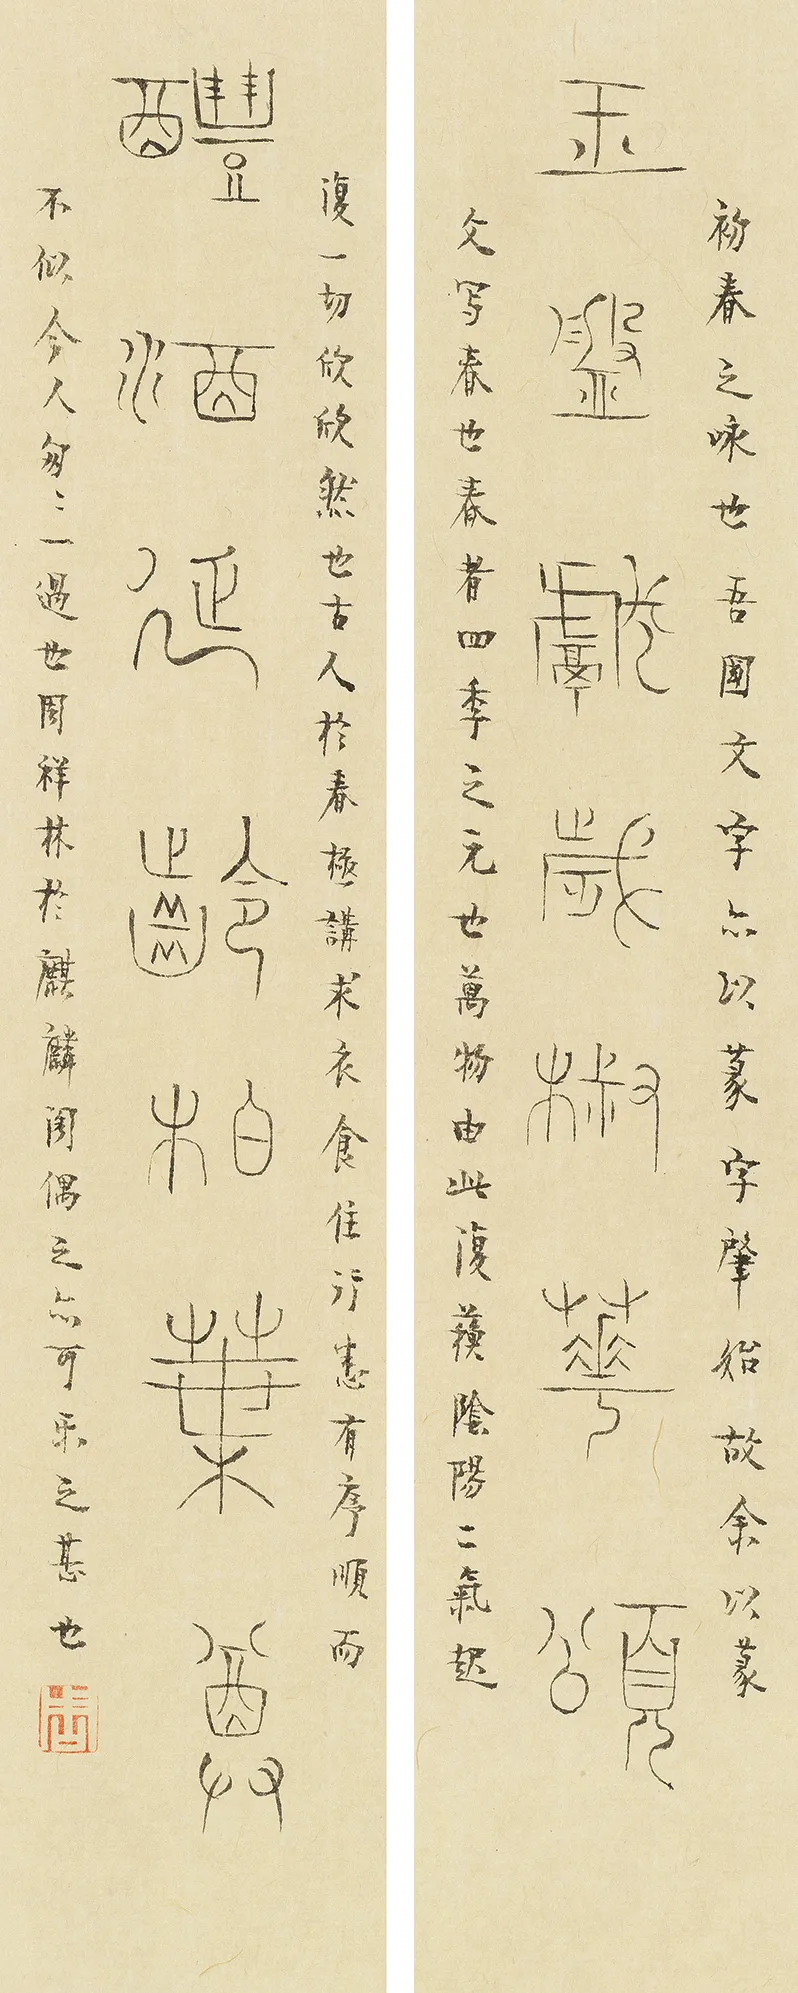 初春之咏也吾國文字亦以篆字肇始故余以篆
玉盤獻歲椒華頌
文写春也春者四季之元也萬物由此復蘓陰陽二氣起
復一切欣欣然也古人於春極講求衣食住行悉有序順而
醴酒延齡柏葉尊
不似今人匆〻一過也周祥林於麒麟閣偶之亦可乐之甚也